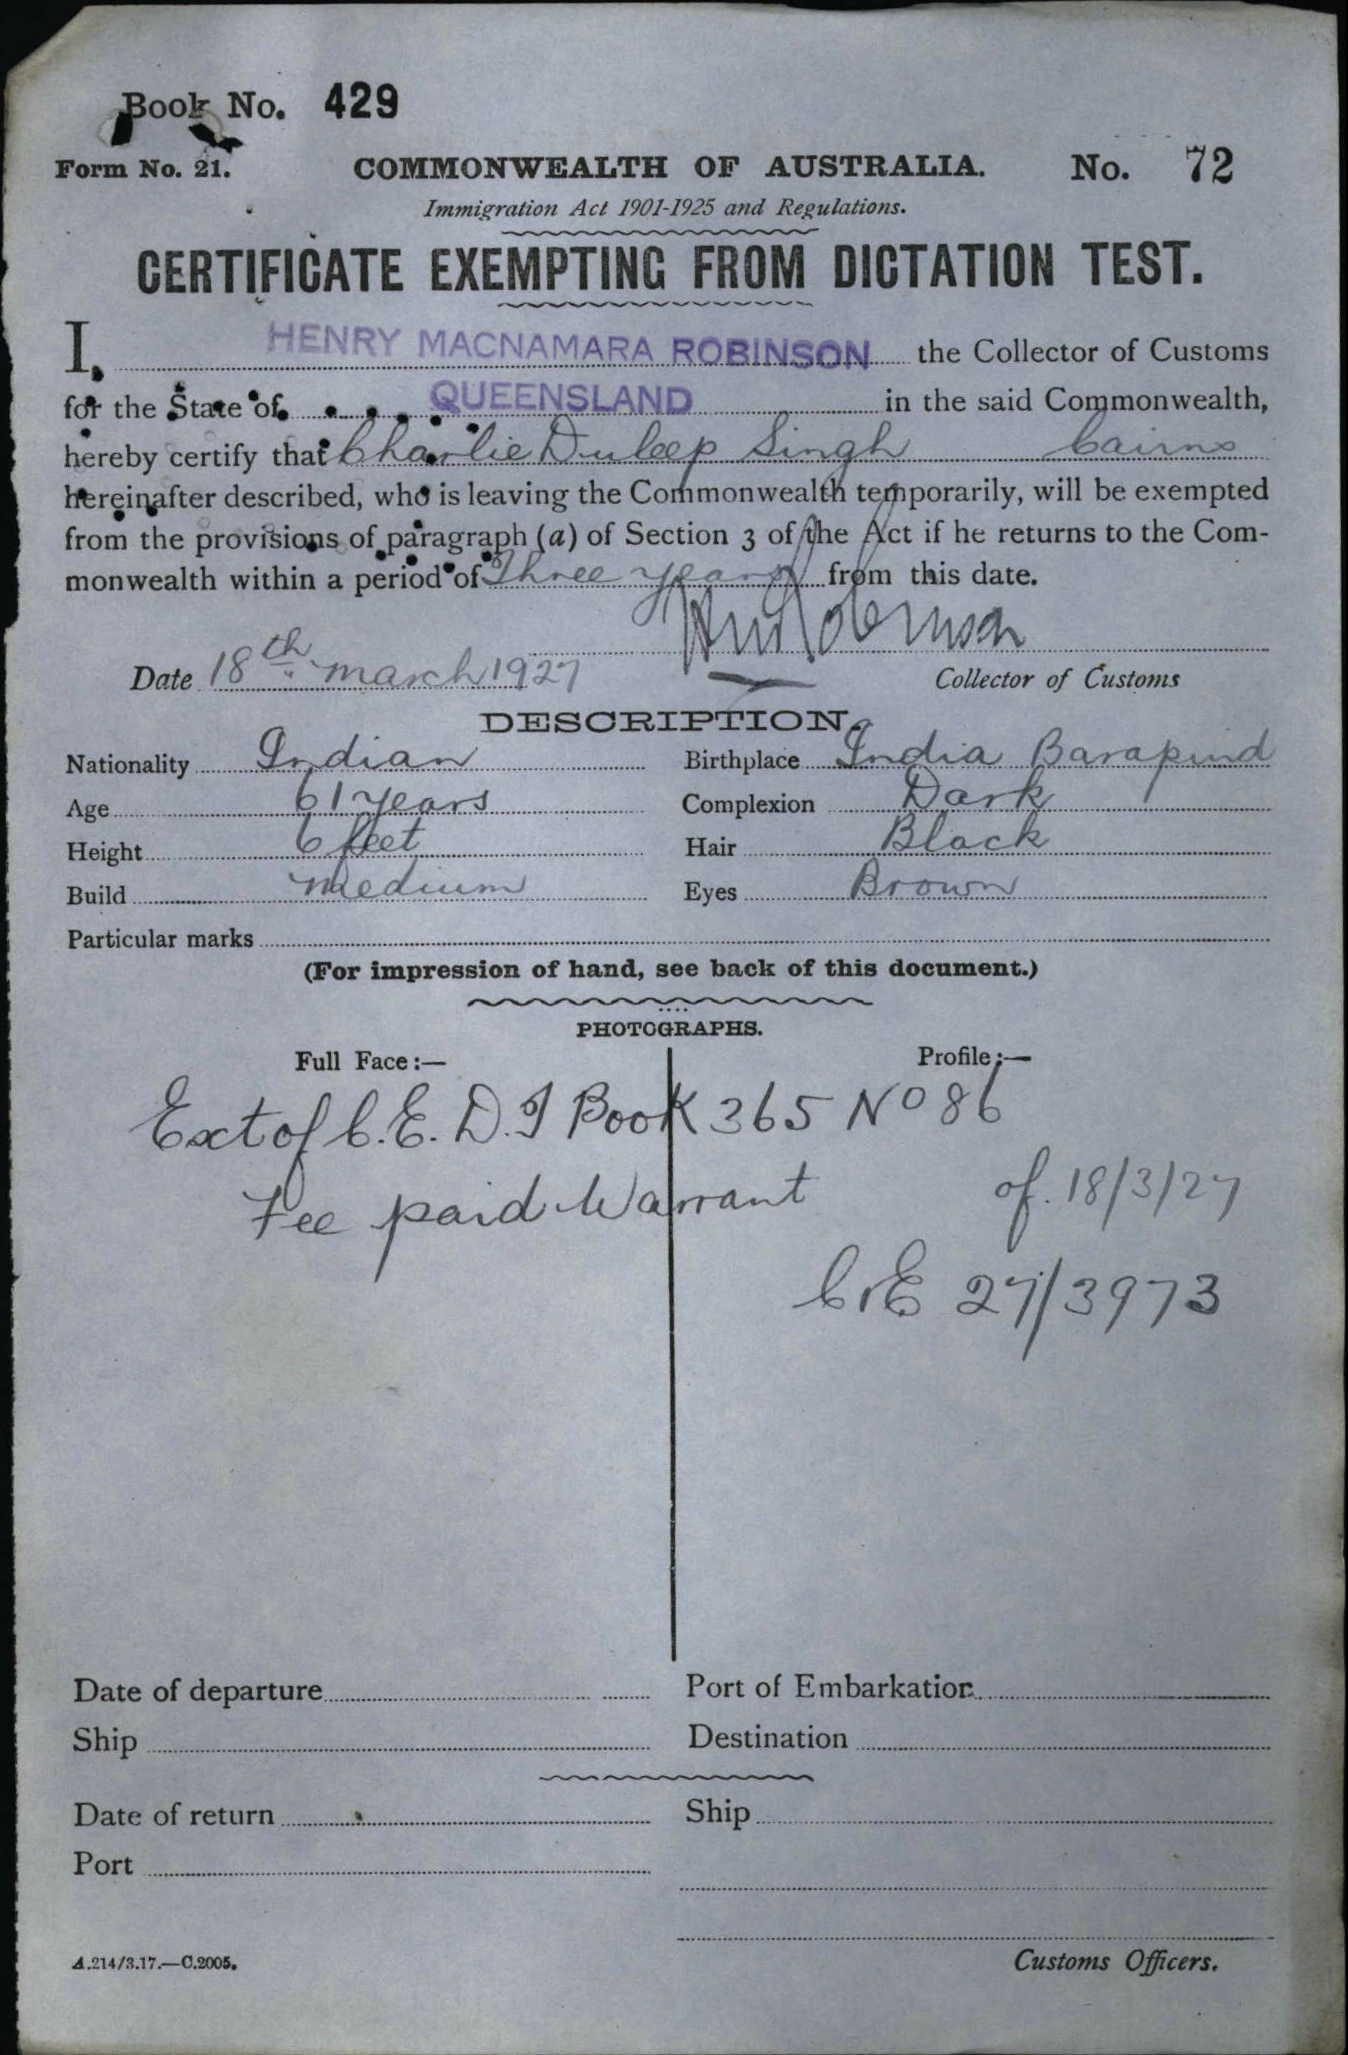 Book No. 429
Form No. 21. COMMONWEALTH OF AUSTRALIA. No. 72
Immigration Act 1901-1925 and Regulations.
CERTIFICATE EXEMPTING FROM DICTATION TEST.
I, HENRY MACNAMARA ROBINSON the Collector of Customs
for the State of QUEENSLAND in the said Commonwealth,
hereby certify that Charlie Duleep Singh Cairns
hereinafter described, who is leaving the Commonwealth temporarily, will be exempted
from the provisions of paragraph (a) of Section 3 of the Act if he returns to the Com-
monwealth within a period of Three years from this date.
HM Robinson
Date 18th March 1927 Collector of Customs
DESCRIPTION.
Nationality Indian Birthplace India Barapind
Age 61 years Complexion Dark
Height 6 feet Hair Black
Build Medium Eyes Brown
Particular marks
(For impression of hand, see back of this document.)
PHOTOGRAPHS.
Full Face:— Profile:—
Ext of C.E.D.T Book 365 No 86
Fee paid Warrant of 18/3/27
C&E 27/3973
Date of departure Port of Embarkation
Ship Destination
Date of return Ship
Port
A.214/3.17.—C.2005. Customs Officers.